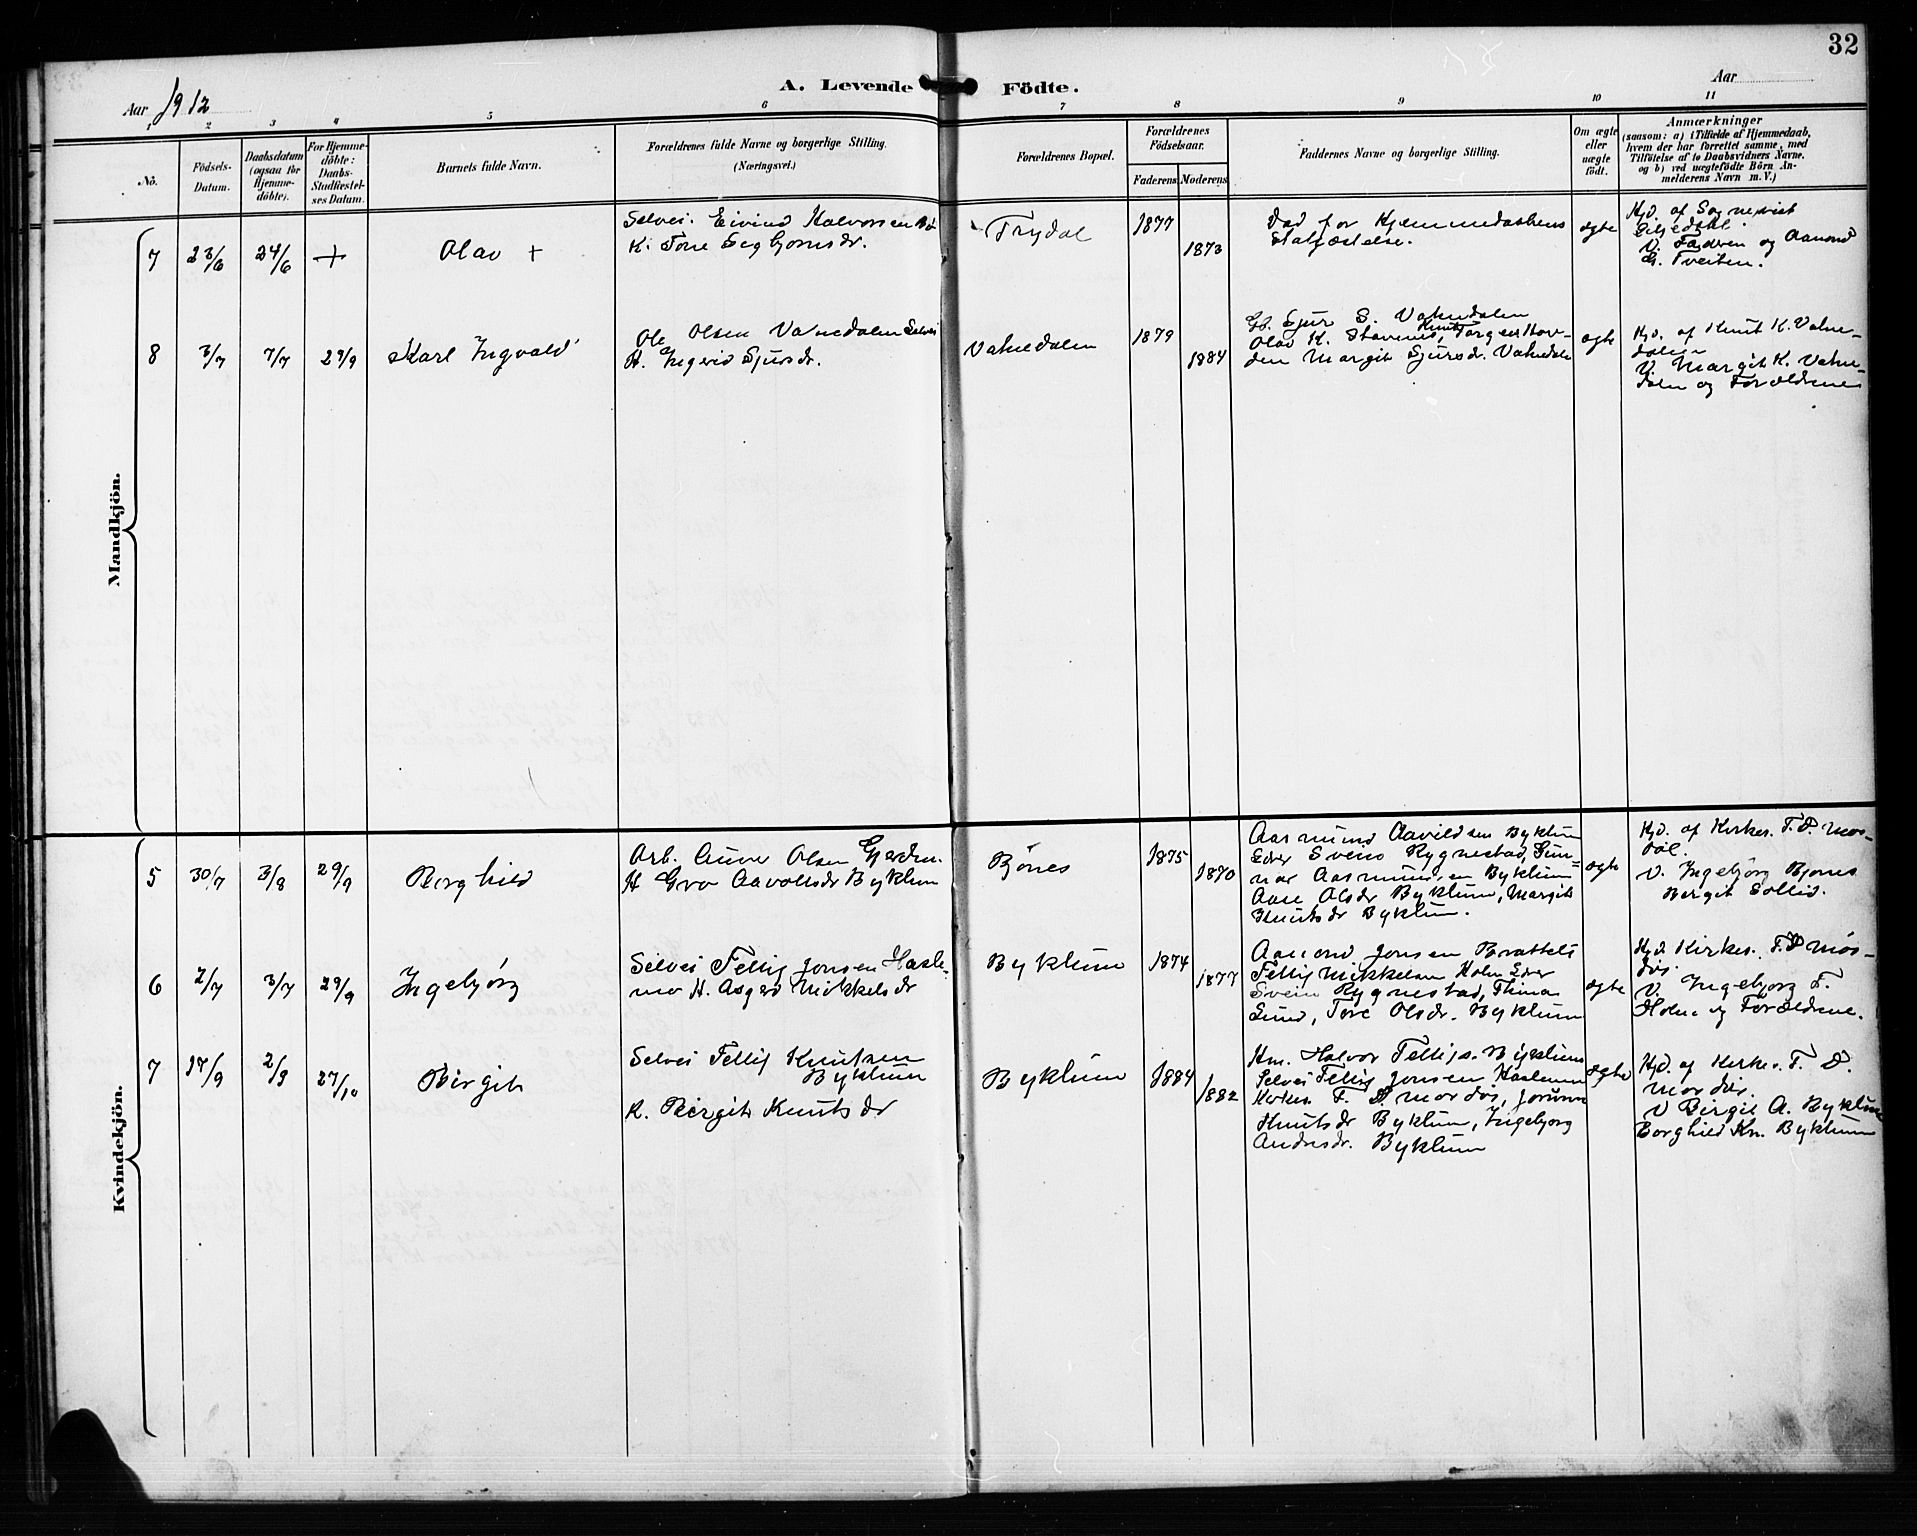 32
A. Levende Födte.
Aar 1912
Aar
1 2 3 4 5 6 7 8 9 10 11
No.
Födsels-
Datum.
Daabsdatum
(ogsaa for
Hjemme-
döbte).
For Hjemme-
döbte:
Daabs-
Stadfæstel-
ses Datum.
Barnets fulde Navn.
Forældrenes fulde Navne og borgerlige Stilling.
(Næringsvei.)
Forældrenes Bopæl.
Forældrenes
Födselsaar.
Faderens
Moderens
Faddernes Navne og borgerlige Stilling.
Om ægte
eller
uægte
födt.
Anmærkninger
(saasom: a) i Tilfælde af Hjemmedaab,
hvem der har forrettet samme, med
Tilföielse af to Daabsvidners Navne.
og b) ved uægtefödte Börn An-
melderens Navn m. V.)
Mandkjön.
7 23/6 24/6 + Olav +
Selvei. Eivind Halvorsen
K. Tone Segbjornsdr.
Trydal
1877
1873
Död for Hjemmedaabens
Stafæstelse.
ægte
Hjd. af Sogneprest
Liljedahl
V. Faderen og Aanond
G. Tveiten.
8 3/7 7/7 29/9 Karl Ingvald
Ole Olsen Vatnedalen Selvei
H. Ingerid Sjursdr.
Vatnedalen
1879
1884
Gb. Sjur S. Vatnedalen
Olav K. Stavenes, Knut Torgeir Hov-
den Margit Sjursdr. Vatnedalen
ægte
Hjd. af Knut K. Vatne-
dalen
V. Margit K. Vatne-
dalen og Forældrene
Kvindekjön.
5 30/7 3/8 29/9 Borghild
Arb. Gunnar Olsen Gjerden.
H Gro Aavoldsdr Byklum
Bjönes
1875
1870
Aasmund Aavildsen Byklum
Eder Svein Rygnestad, Gun-
nar Aasmundsen Byklum
Aase Olsdr Byklum, Margit
Knutsdr Byklum.
ægte
Hjd. af Kirkes. T. D. Mos-
döl.
V. Ingebjörg Bjones
Bergit Sollid.
6 2/7 3/7 29/9 Ingebjörg
Selvei Tellef Jonsen Hasle-
mo H. Asgerd Mikkelsdr
Byklum
1874
1877
Aanond Jonsen Brattelt
Tellef Mikkelsen Holen Eder
Svein Rygnestad,
Gund, Tore Olsdr. Byklum
ægte
Hjd. Kirkes. T. D. Mos-
döl
V. Ingebjorg T.
Holen og Forældrene.
7 17/9 2/9 27/10 Birgit
Selvei Tellef Knutsen
Byklum
K. Birgit Knutsdr
Byklum
1884
1882
Hm. Halvor Tellefs. Byklum
Selvei Tellef Jonsen Haslemo
Kirkes. T. D. Mosdöl, Jorunn
Knutsdr Byklum, Ingebjorg
Andresdr. Byklum
ægte
Hjd. af Kirkes. T. D.
Mosdöl.
V Birgit A. Byklum
Borghild Kn. Byklum